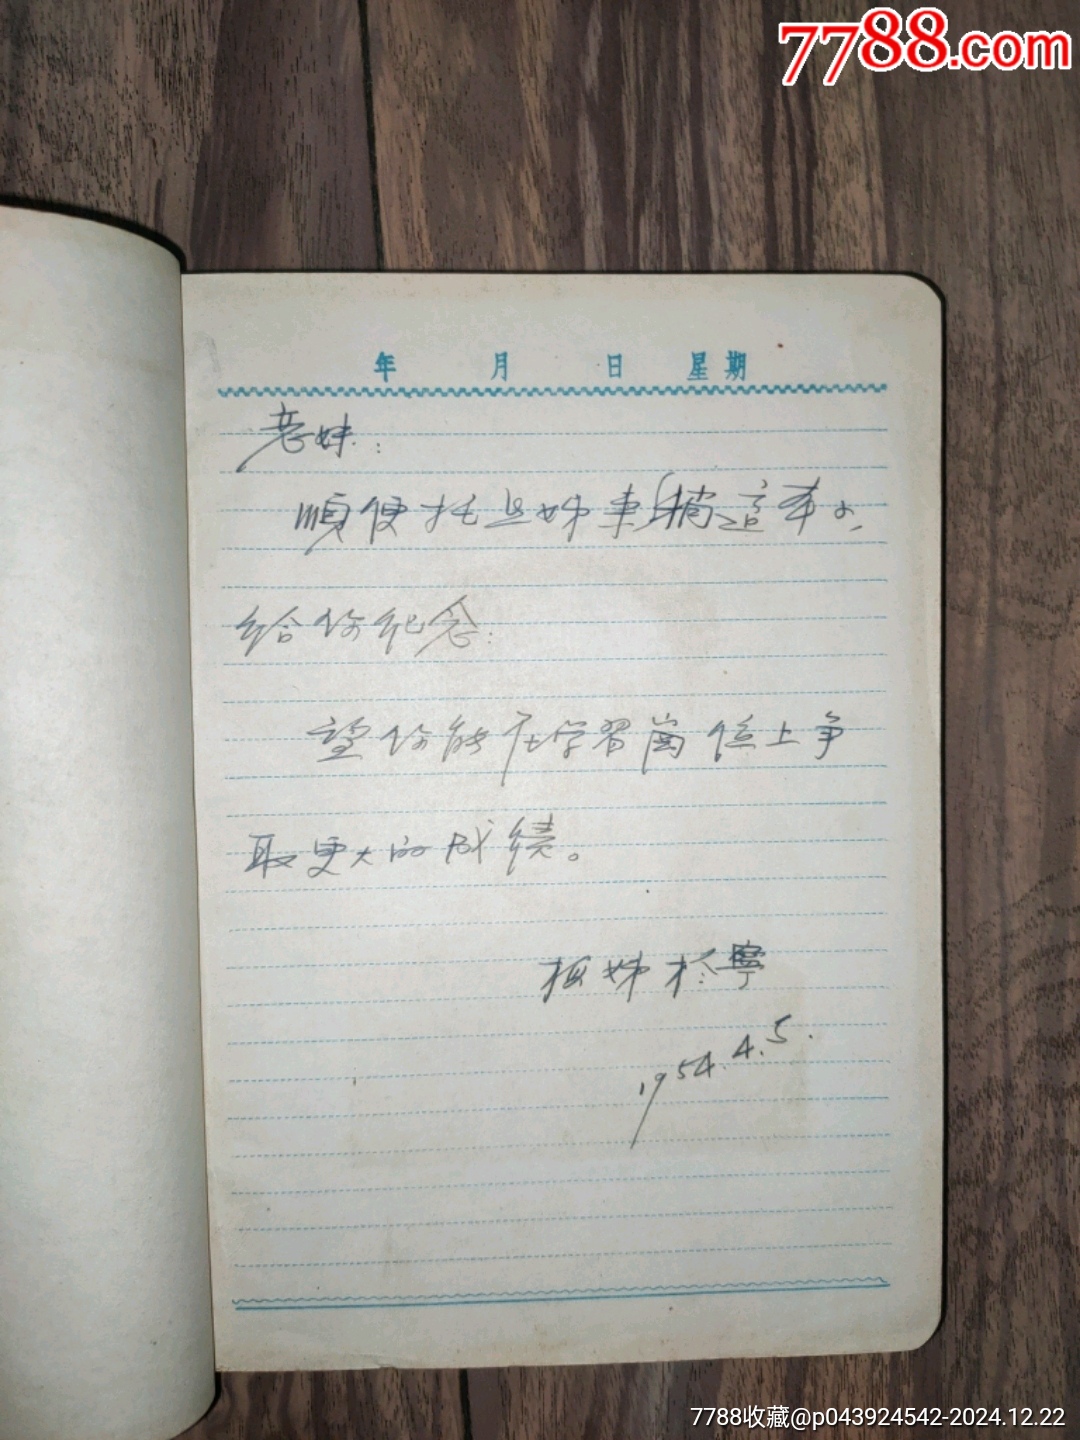 7788.com
年 月 日 星期
老妹:
順便托 姊 捎這本
给你纪念:
望你能在学習崗位上争
取更大的成績。
姊 於寧
1954.4.5.
7788收藏@p043924542-2024.12.22